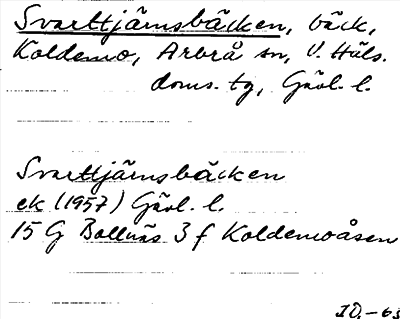 Svarttjärnsbäcken, bäck,
Koldemo, Arbrå sn, V. Häls.
doms. tg, Gävl. l.
Svarttjärnsbäcken
ek (1957) Gävl. l.
15 G Bollnäs 3 f Koldemoåsen
JO.-63